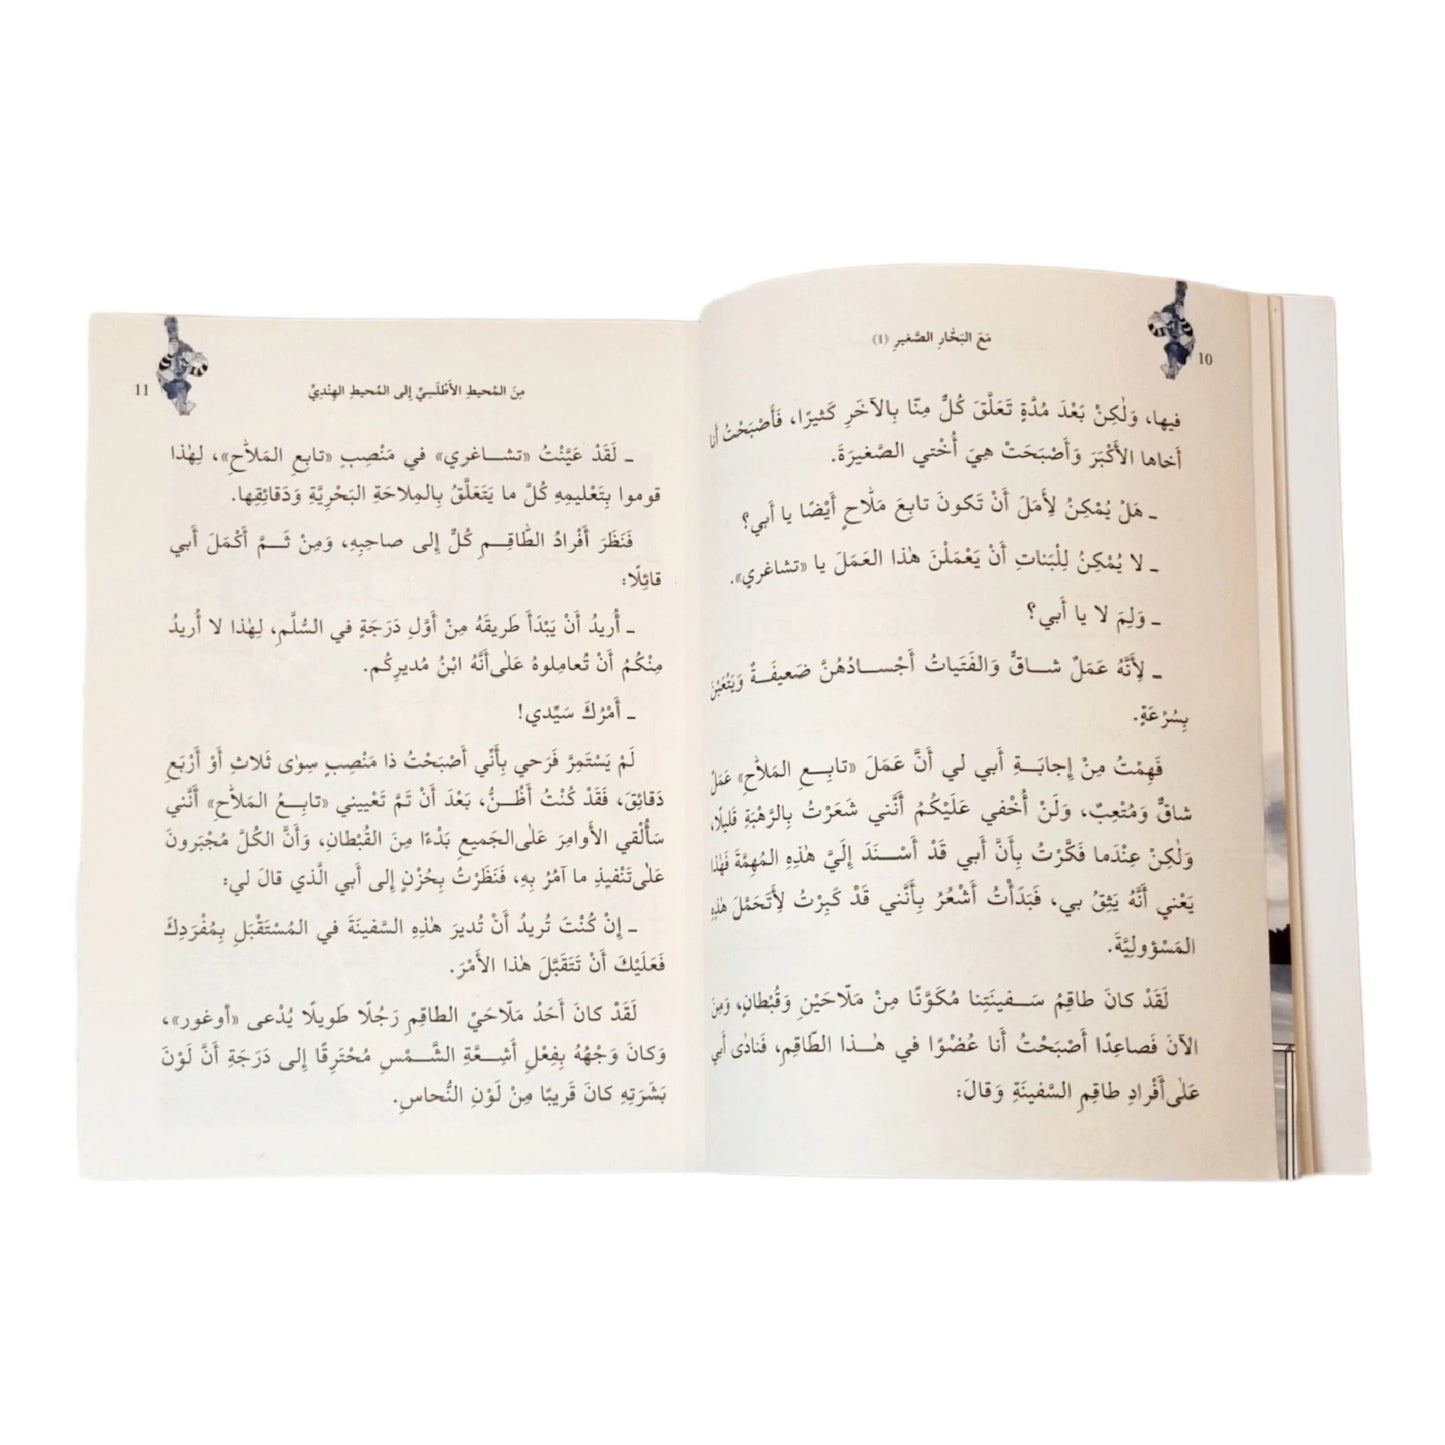 10
مَعَ البَحّارِ الصَّغيرِ (1)
فيها، وَلٰكِنْ بَعْدَ مُدَّةٍ تَعَلَّقَ كُلٌّ مِنّا بِالآخَرِ كَثيرًا، فَأَصْبَحْتُ أَنا
أَخاها الأَكْبَرَ وَأَصْبَحَتْ هِيَ أُخْتي الصَّغيرَةَ.
ـ هَلْ يُمْكِنُ لِأَمَلَ أَنْ تَكونَ تابِعَ مَلّاحٍ أَيْضًا يا أَبي؟
ـ لا يُمْكِنُ لِلْبَناتِ أَنْ يَعْمَلْنَ هٰذا العَمَلَ يا «تشاغري».
ـ وَلِمَ لا يا أَبي؟
ـ لِأَنَّهُ عَمَلٌ شاقٌّ وَالفَتَياتُ أَجْسادُهُنَّ ضَعيفَةٌ وَيَتْعَبْنَ
بِسُرْعَةٍ.
فَهِمْتُ مِنْ إِجابَةِ أَبي لي أَنَّ عَمَلَ «تابِعِ المَلاّحِ» عَمَلٌ
شاقٌّ وَمُتْعِبٌ، وَلَنْ أُخْفي عَلَيْكُمُ أَنَّني شَعَرْتُ بِالرَّهْبَةِ قَليلًا،
وَلٰكِنْ عِنْدَما فَكَّرْتُ بِأَنَّ أَبي قَدْ أَسْنَدَ إِلَيَّ هٰذِهِ المُهِمَّةَ فَهٰذا
يَعْني أَنَّهُ يَثِقُ بي، فَبَدَأْتُ أَشْعُرُ بِأَنَّني قَدْ كَبِرْتُ لِأَتَحَمَّلَ هٰذِهِ
المَسْؤوليَّةَ.
لَقَدْ كانَ طاقِمُ سَفينَتِنا مُكَوَّنًا مِنْ مَلّاحَيْنِ وَقُبْطانٍ، وَمِنَ
الآنَ فَصاعِدًا أَصْبَحْتُ أَنا عُضْوًا في هٰذا الطّاقِمِ، فَنادٰى أَبي
عَلٰى أَفْرادِ طاقِمِ السَّفينَةِ وَقالَ:
11
مِنَ المُحيطِ الأَطْلَسِيِّ إِلى المُحيطِ الهِنْدِيِّ
ـ لَقَدْ عَيَّنْتُ «تشاغري» في مَنْصِبِ «تابِعِ المَلاّحِ»، لِهٰذا
قوموا بِتَعْليمِهِ كُلَّ ما يَتَعَلَّقُ بِالمِلاحَةِ البَحْرِيَّةِ وَدَقائِقِها.
فَنَظَرَ أَفْرادُ الطّاقِمِ كُلٌّ إِلى صاحِبِهِ، وَمِنْ ثَمَّ أَكْمَلَ أَبي
قائِلًا:
ـ أُريدُ أَنْ يَبْدَأَ طَريقَهُ مِنْ أَوَّلِ دَرَجَةٍ في السُّلَّمِ، لِهٰذا لا أُريدُ
مِنْكُمُ أَنْ تُعامِلوهُ عَلٰى أَنَّهُ ابْنُ مُديرِكُم.
ـ أَمْرُكَ سَيِّدي!
لَمْ يَسْتَمِرَّ فَرَحي بِأَنّي أَصْبَحْتُ ذا مَنْصِبٍ سِوٰى ثَلاثِ أَوْ أَرْبَعِ
دَقائِقَ، فَقَدْ كُنْتُ أَظُنُّ، بَعْدَ أَنْ تَمَّ تَعْييني «تابِعُ المَلاّحِ» أَنَّني
سَأُلْقي الأَوامِرَ عَلٰى الجَميعِ بَدْءًا مِنَ القُبْطانِ، وَأَنَّ الكُلَّ مُجْبَرونَ
عَلٰى تَنْفيذِ ما آمُرُ بِهِ، فَنَظَرْتُ بِحُزْنٍ إِلى أَبي الَّذي قالَ لي:
ـ إِنْ كُنْتَ تُريدُ أَنْ تُديرَ هٰذِهِ السَّفينَةَ في المُسْتَقْبَلِ بِمُفْرَدِكَ
فَعَلَيْكَ أَنْ تَتَقَبَّلَ هٰذا الأَمْرَ.
لَقَدْ كانَ أَحَدُ مَلّاحَيْ الطاقِمِ رَجُلًا طَويلًا يُدْعى «أوغور»،
وَكانَ وَجْهُهُ بِفِعْلِ أَشِعَّةِ الشَّمْسِ مُحْتَرِقًا إِلى دَرَجَةِ أَنَّ لَوْنَ
بَشَرَتِهِ كانَ قَريبًا مِنْ لَوْنِ النُّحاسِ.